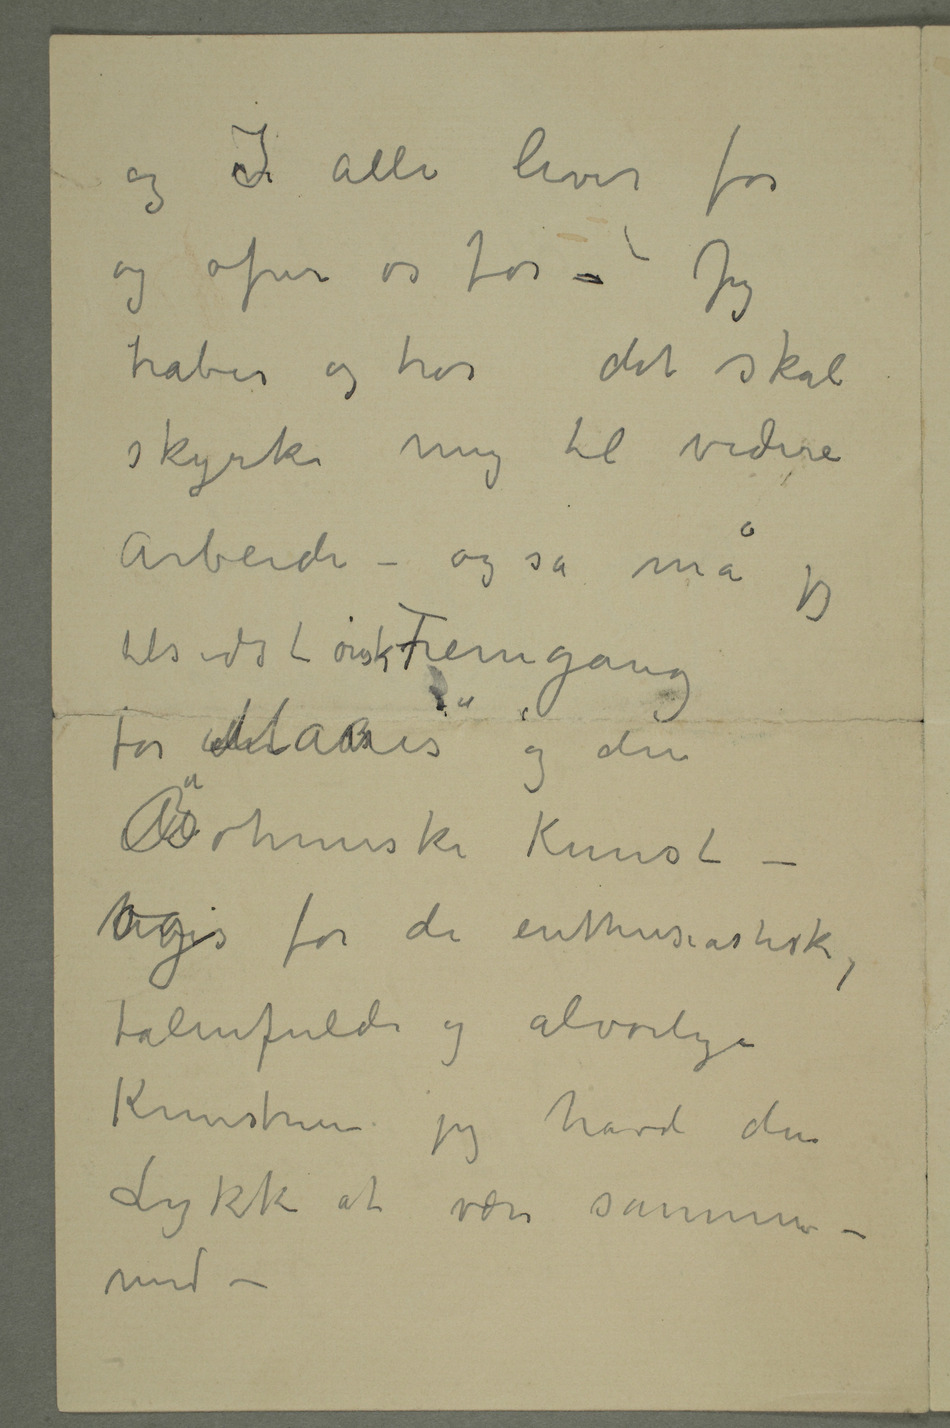 og I alle lever for
og ofrer os for – Jeg
håber og tror det skal
styrke mig til videre
Arbeide – og så må jeg
tilsidst ønske Fremgang
for „Manes“ og den
Bøhmiske Kunst –
og for de enthusiastiske,
talenfulde og alvorlige
Kunstnere jeg havde den
Lykke at være sammen –
med –